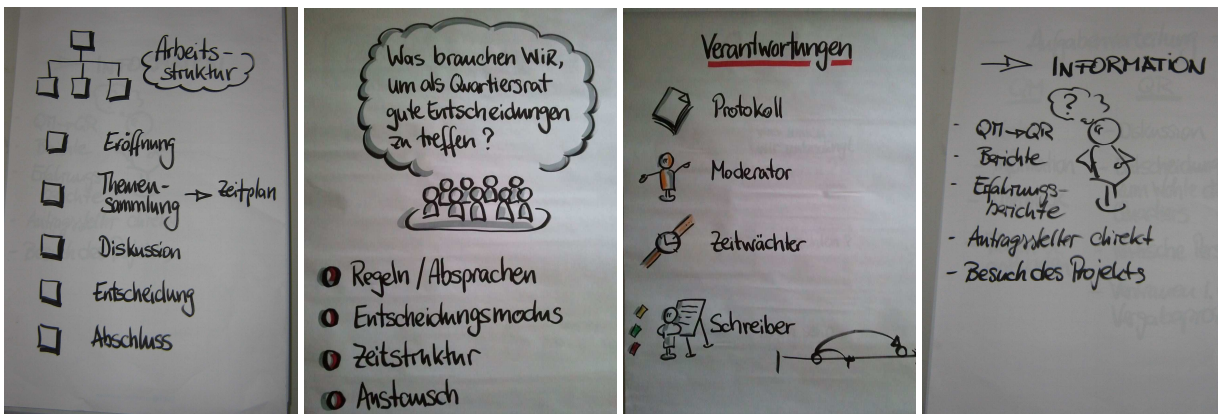 Arbeits-
struktur
Eröffnung
Themen-
Sammlung → Zeitplan
Diskussion
Entscheidung
Abschluss
Was brauchen WiR,
um als Quartiersrat
gute Entscheidungen
zu treffen?
Regeln / Absprachen
Entscheidungsmodus
Zeitstruktur
Austausch
Verantwortungen
Protokoll
Moderator
Zeitwächter
Schreiber
→ INFORMATION
?
- QM → QR
- Berichte
- Erfahrungs-
berichte
- Antragssteller direkt
- Besuch des Projekts